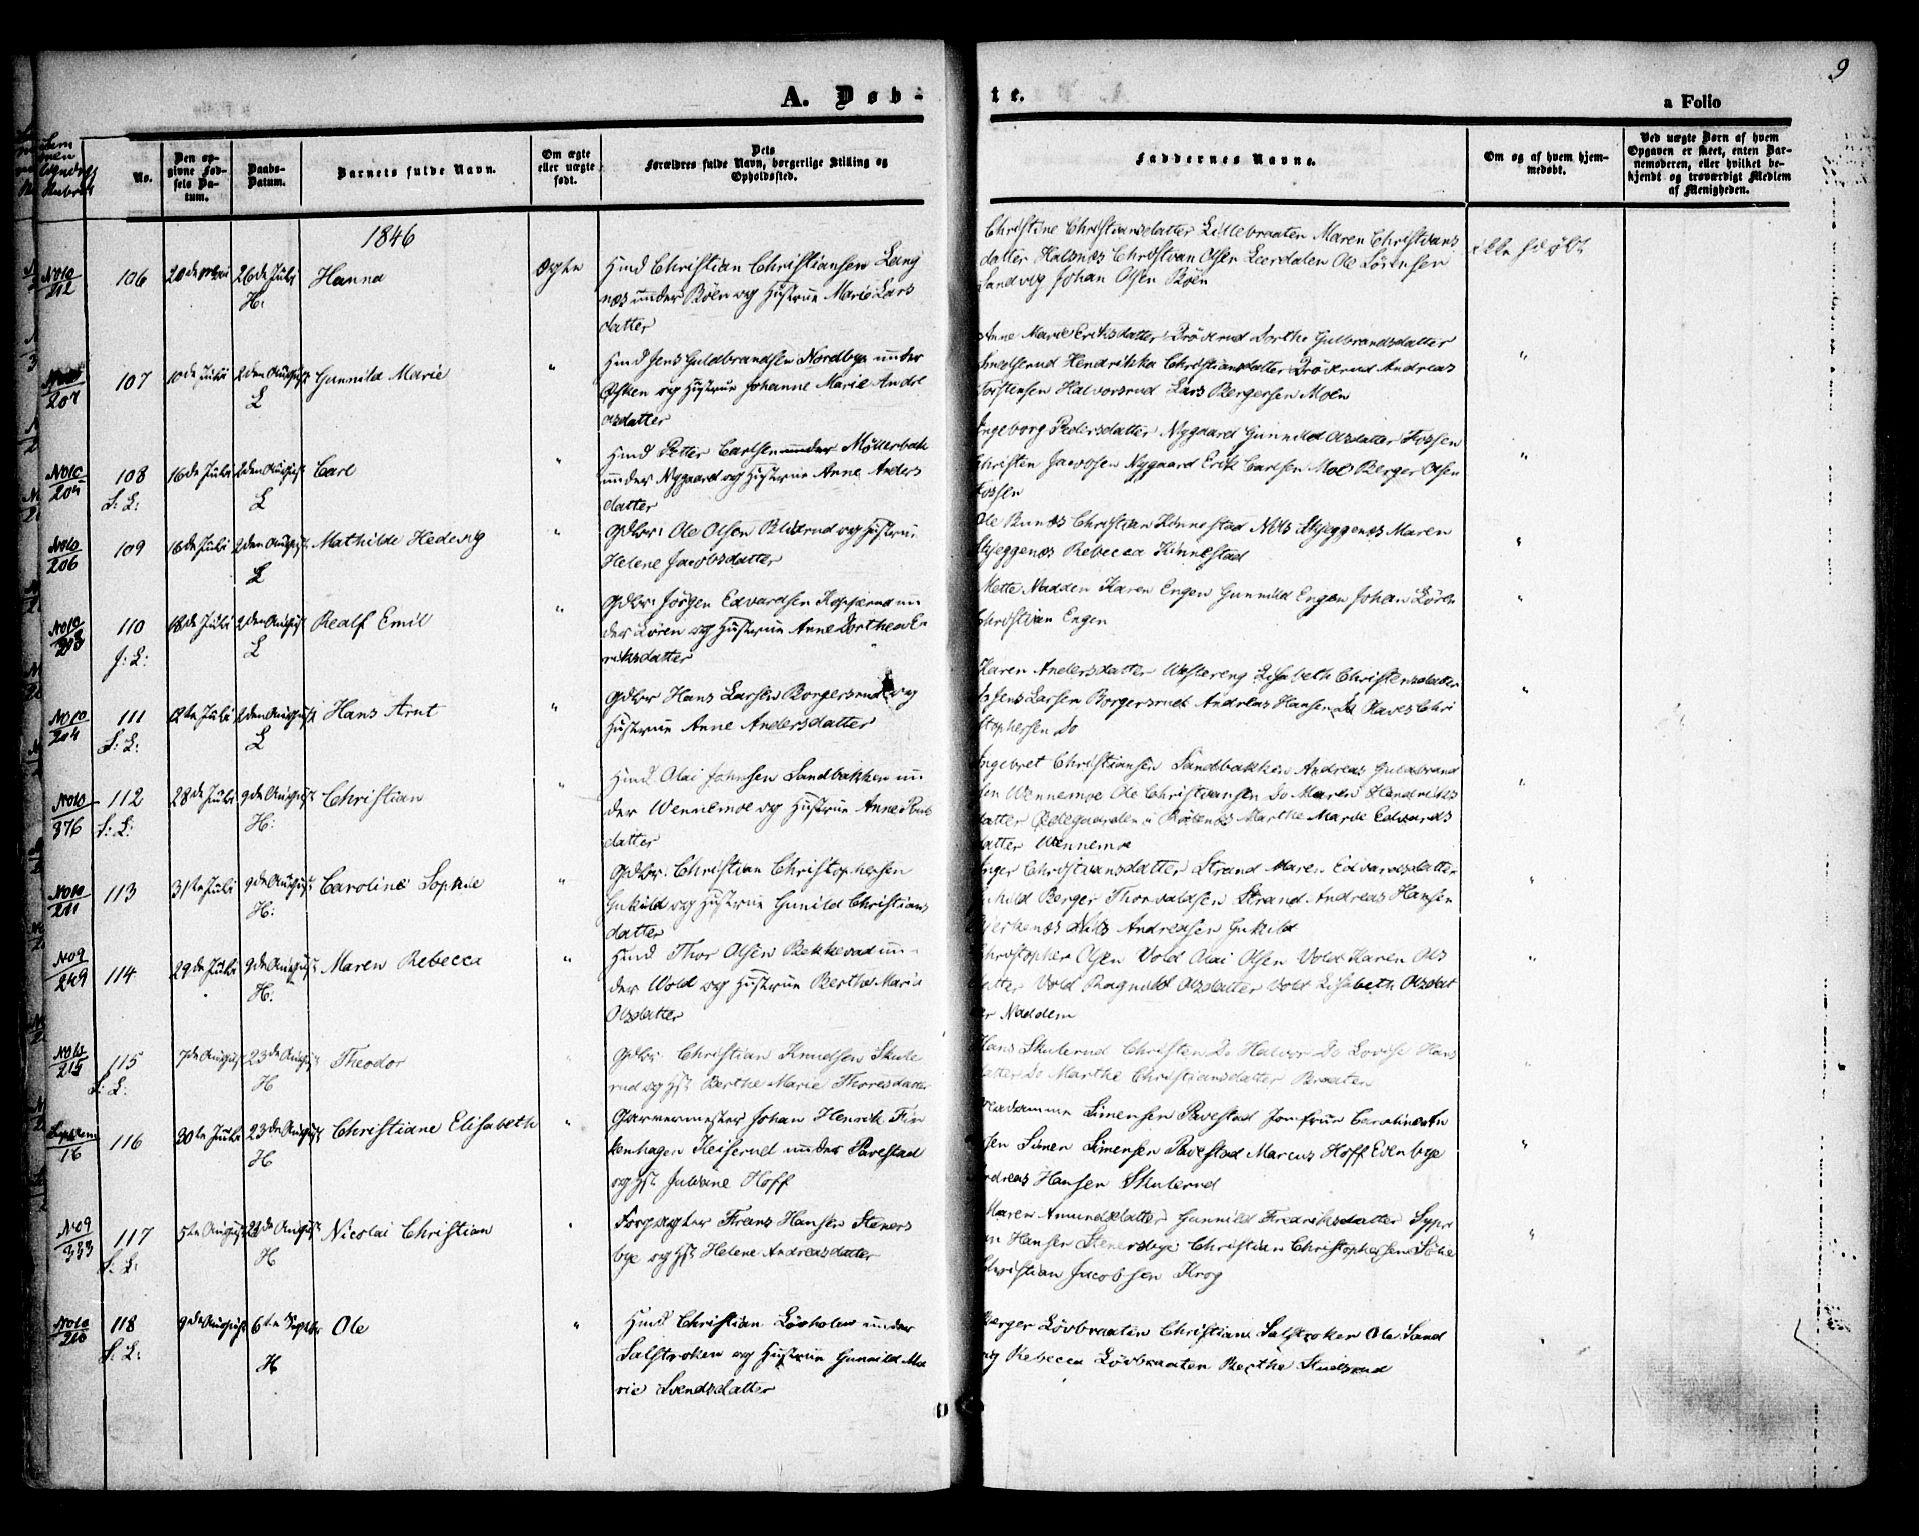 9
A. Døb-
te.
a Folio
No.
Den op-
givne Fød-
sels Da-
tum.
Daabs-
Datum.
Barnets fulde Navn.
Om ægte
eller uægte
født.
Dets
Forældres fulde Navn, borgerlige Stilling og
Opholdssted.
Faddernes Navne.
Om og af hvem hjem-
medøbt.
Ved uægte Børn af hvem
Opgaven er skeet, enten Bar-
nemoderen, eller hvilket be-
kjendt og troværdigt Medlem
af Menigheden.
1846
No10
212
106
20de Mai
26de Juli
H:
Hanna
Ægte
Huusmd Christian Christiansen Lang
næs under Böen og Hustrue Marie Lars
datter
Christine Christiansdatter Lillebraaten Maren Christians
datter Halsnæs Christian Olsen Leerdalen Ole Sörensen
Sandvig Johan Olsen Böen
ikke hjdöbt
207
107
10de Juli
2den August
L
Gunnild Marie
"
Huusmd Jens Guldbrandsen Nordbye under
og Hustrue Johanne Marie Andre
asdatter
Anne Marie Eriksdatter Dorthe Gulbrandsdatter
Hendrikka Christiansdatter Andreas
Torstensen Halvorsrud Lars Bergersen Moen
"
No10
205
108
S: L:
16de Juli
2den August
L
Carl
"
Huusmd Petter Carlsen under Möllerbak
under Nygaard og Hustrue Anne Anders
datter
Ingeborg Pedersdatter Nygaard Gunnild Olsdatter Fossen
Christen Jacobsen Nygaard Erik Carlsen Moe Berger Olsen
Fossen
"
No10
206
109
16de Juli
2den August
L
Mathilde Hedevig
"
Gdbr: Ole Olsen og Hustrue
Helene Jacobsdatter
Ole Bunæs Christian Kinnestad Nils Skjeggenæs Maren
Skjeggenæs Rebecca Kinnestad
"
No10
110
S: L:
18de Juli
2den August
L
Realf Emil
"
Gdbr: Jörgen Edvardsen Kopperud un-
der Lören og Hustrue Anne Dorthea E-
riksdatter
Mette Nadden Karen Engen Gunnild Engen Johan Lören
Christian Engen
"
No10
204
111
S: L:
12te Juli
2den August
L
Hans Arnt
"
Gdbr Hans Larsen Borgersrud og
Hustrue Anne Andersdatter
Karen Andersdatter Westereng Lisabeth Christensdatter
Jens Larsen Borgersrud Andreas Hansen Do Chri
stophersen Do
"
No10
376
112
S: L:
28de Juli
9de August
H:
Christian
"
Huusmd Olai Johnsen Sandbakken un-
der Wennemoe og Hustrue Anne
datter
Ingebret Christiansen Sandbakken Andreas Guldbrand
sen Wennemoe Ole Christiansen Do Maren Hendriks
datter Ödegaarden Marthe Marie Edvards
datter Wennemoe
"
No10
211
113
31te Juli
9de August
H:
Caroline Sophie
"
Gdbr: Christian Christophersen
Gukild og Hustrue Gunild Christians
datter
Inger Christiansdatter Strand Maren Edvardsdatter
Gukild Berger Thorvaldsen Strand Andreas Hansen
Bjerkenæs Nils Andreasen Gukild
"
No9
249
114
29de Juli
9de August
H:
Maren Rebecca
"
Huusmd Thor Olsen Bekkevad un-
der Wold og Hustrue Berthe Marie
Olsdatter
Christopher Olsen Vold Olai Olsen Vold Karen Ols
datter Vold Ragnild Olsdatter Vold Lisabeth Olsdat
ter Naddem
"
No10
215
115
S: L:
7de August
23de August
H
Theodor
"
Gdbr. Christian Knudsen Skule
rud og Hst Berthe Marie Thoresdatter
Hans Skulerud Christen Do Halvor Do Lovise Hans
datter Do Marthe Christiansdatter Braaten
"
Septem
16
116
30te Juli
23de August
H
Christiane Elisabeth
"
Garvermester Johan Henrik Fin
kenhagen Keiserud under Pavestad
og Hst. Juliane Hoff
Madamme Simensen Pavestad Jomfrue Caroline An
sen Simen Simensen Pavestad Marcus Hoff Evenbye
Andreas Hansen Skulerud
"
No9
333
117
S: L:
5te August
23de August
H
Nicolai Christian
"
Forpagter Frans Hansen Steners
bye og Hst Helene Andreasdatter
Maren Amundsdatter Gunnild Fredriksdatter Sypri
an Hansen Stenersbye Christian Christophersen
Christian Jacobsen Krog
"
No10
210
118
S: L:
9de August
6te Septbr
H
Ole
"
Huusmd. Christian Lövholen under
Salstroken og Hustrue Gunnild Ma
rie Svendsdatter
Berger Lövbraaten Christian Salstroken Ole Sand
vig Rebecca Lövbraaten Berthe Studsrud
"